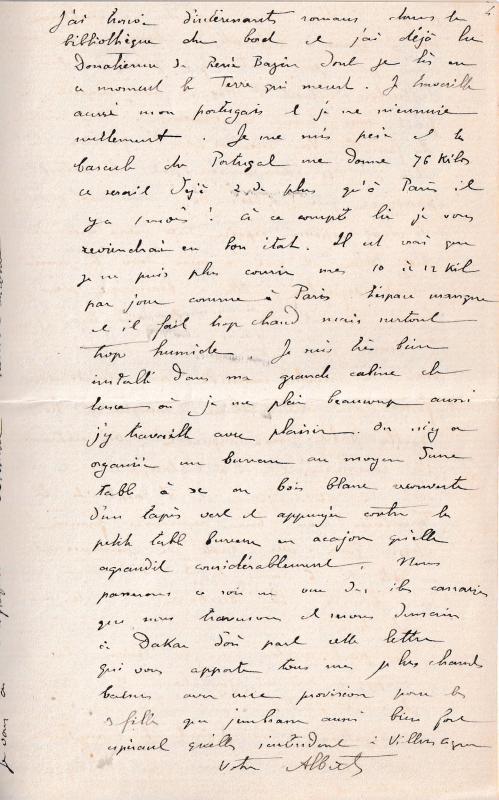 J'ai trouvé d'intéressants romans dans la
bibliothèque du bord et j'ai déjà lu
Donatienne de René Bazin dont je lis en
ce moment la Terre qui meurt. Je travaille
aussi mon portugais et je ne m'ennuie
nullement. Je me suis pesé et la
bascule du Portugal me donne 76 Kilos
ce serait déjà 2 de plus qu'à Paris il
y a 1 mois ! à ce compte là je vous
reviendrai en bon état. Il est vrai que
je ne puis plus courir mes 10 à 12 Kil
par jour comme à Paris l'espace manque
et il fait trop chaud mais surtout
trop humide Je suis très bien
installé dans ma grande cabine de
luxe où je me plais beaucoup aussi
j'y travaille avec plaisir. On m'y a
organisé un bureau au moyen d'une
table à en bois blanc recouverte
d'un tapis vert et appuyée contre la
petite table bureau en acajou qu'elle
agrandit considérablement. Nous
passerons ce soir en vue des îles
que nous et serons demain
à Dakar d'où part cette lettre
qui vous apporte tous mes plus chauds
baisers avec une provision pour les
3 filles que j'embrasse aussi bien fort
espérant qu'elles à
Votre Albert
je vous